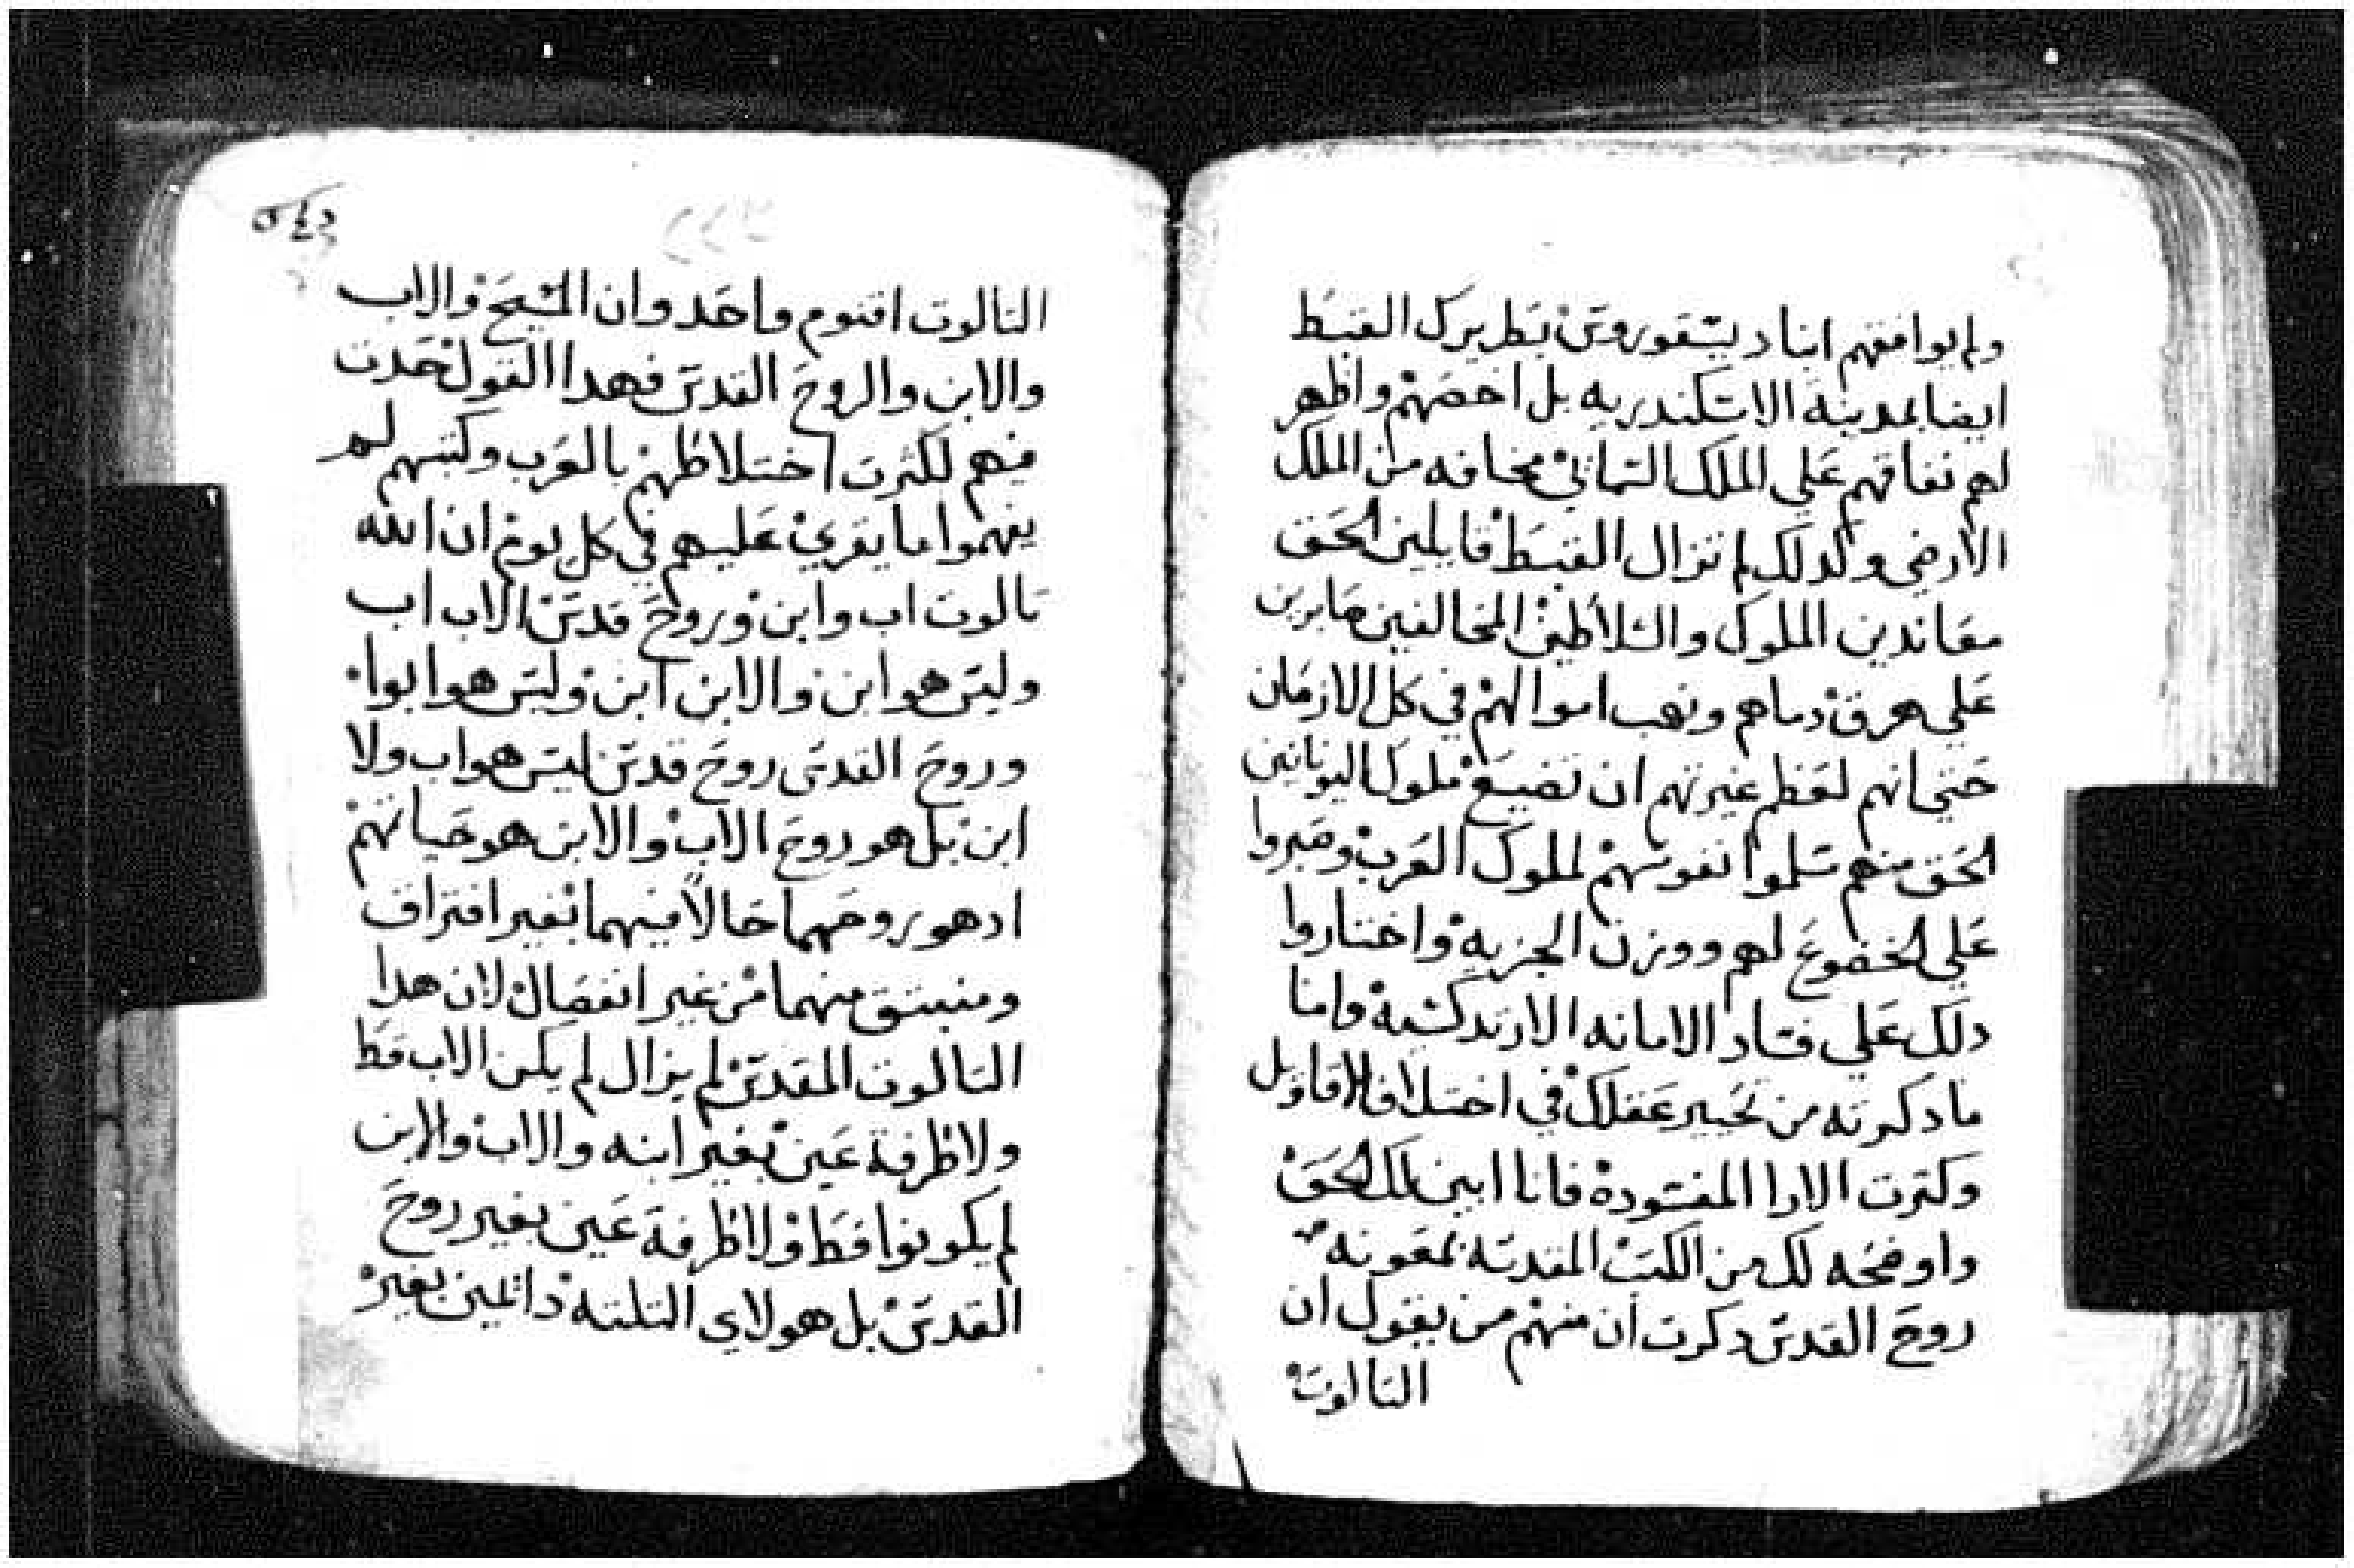 ولم يوافقهم انبا ديسقورس بطريرك القبط
ايضا بمدينة الاسكندريه بل اخصمهم واظهر
لهم نفاقهم علي الملك السمائي مخافه من الملك
الارضي ولدلك لم تزال القبط قايلين الحق
معاندين الملوك والسلاطين المخالفين صابرين
علي هرق دماهم ونهب اموالهم في كل الازمان
حتي انهم لعظم غيرتهم ان تضيع ملوك اليونانين
الحق منهم سلموا نفوسهم لملوك العرب وصبروا
علي الخضوع لهم ووزن الجزيه واختاروا
دلك علي فساد الامانه الارتدكسيه واما
ما دكرته من تحيير عقلك في اختلاف الاقاويل
وكترت الارا المفسودة فانا ابين لك الحق
واوضحه لك من الكتب المقدسه بمعونه
روح القدس دكرت ان منهم من يقول ان
التالوت
التالوت اقنوم واحد وان المسيح والاب
والابن والروح القدس فهدا القول حدت
فيهم لكثرت اختلاطهم بالعرب وكتبهم لم
يفهموا ما يقري عليهم في كل يوم ان الله
تالوت اب وابن وروح قدس الاب اب
وليس هو ابن والابن ابن وليس هو ابوا
وروح القدس روح قدس ليس هو اب ولا
ابن بل هو روح الاب والابن هو حياتهم
اد هو روحهما حالا فيهما بغير افتراق
ومنبتق منهما من غير انفصال لان هدا
التالوت المقدس لم يزال لم يكن الاب قط
ولا طرفة عين بغير ابنه والاب والابن
لم يكونوا قط ولا طرفة عين بغير روح
القدس بل هولاي التلته دائمين بغير